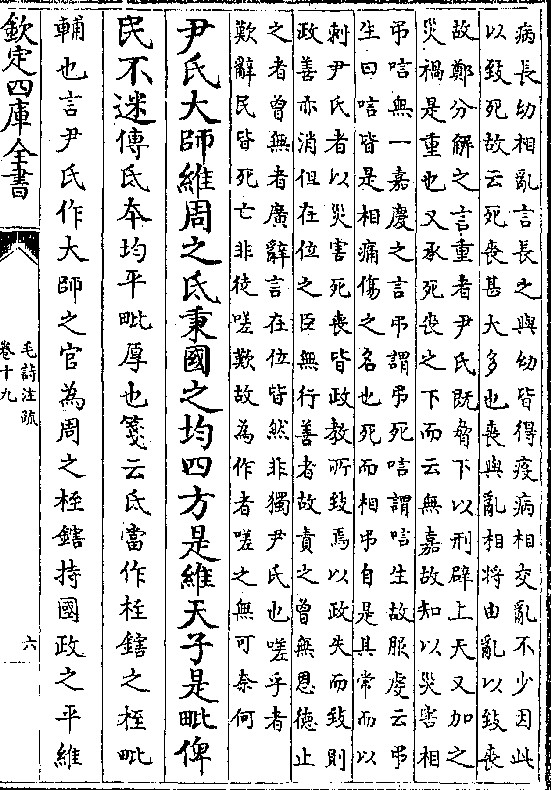 病長幼相亂言長之與幼皆得疫病相交亂不少因此
以致死故云死喪甚大多也喪與亂相將由亂以致喪
故鄭分解之言重者尹氏既脅下以刑辟上天又加之
災禍是重也又承死喪之下而云無嘉故知以災害相
弔唁無一嘉慶之言弔謂弔死唁謂唁生故服虔云弔
生曰唁皆是相痛傷之名也死而相弔自是其常而以
刺尹氏者以災害死喪皆政教所致焉以政失而致則
政善亦消但在位之臣無行善者故責之曾無恩德止
之者曾無者廣辭言在位皆然非獨尹氏也嗟乎者
歎辭民皆死亡非徒嗟歎故為作者嗟之無可奈何
尹氏大師維周之氐秉國之均四方是維天子是毗俾
民不迷傳氐本均平毗厚也箋云氐當作桎鎋之桎毗
輔也言尹氏作大師之官為周之桎鎋持國政之平維
欽定四庫全書
毛詩注疏
卷十九
六